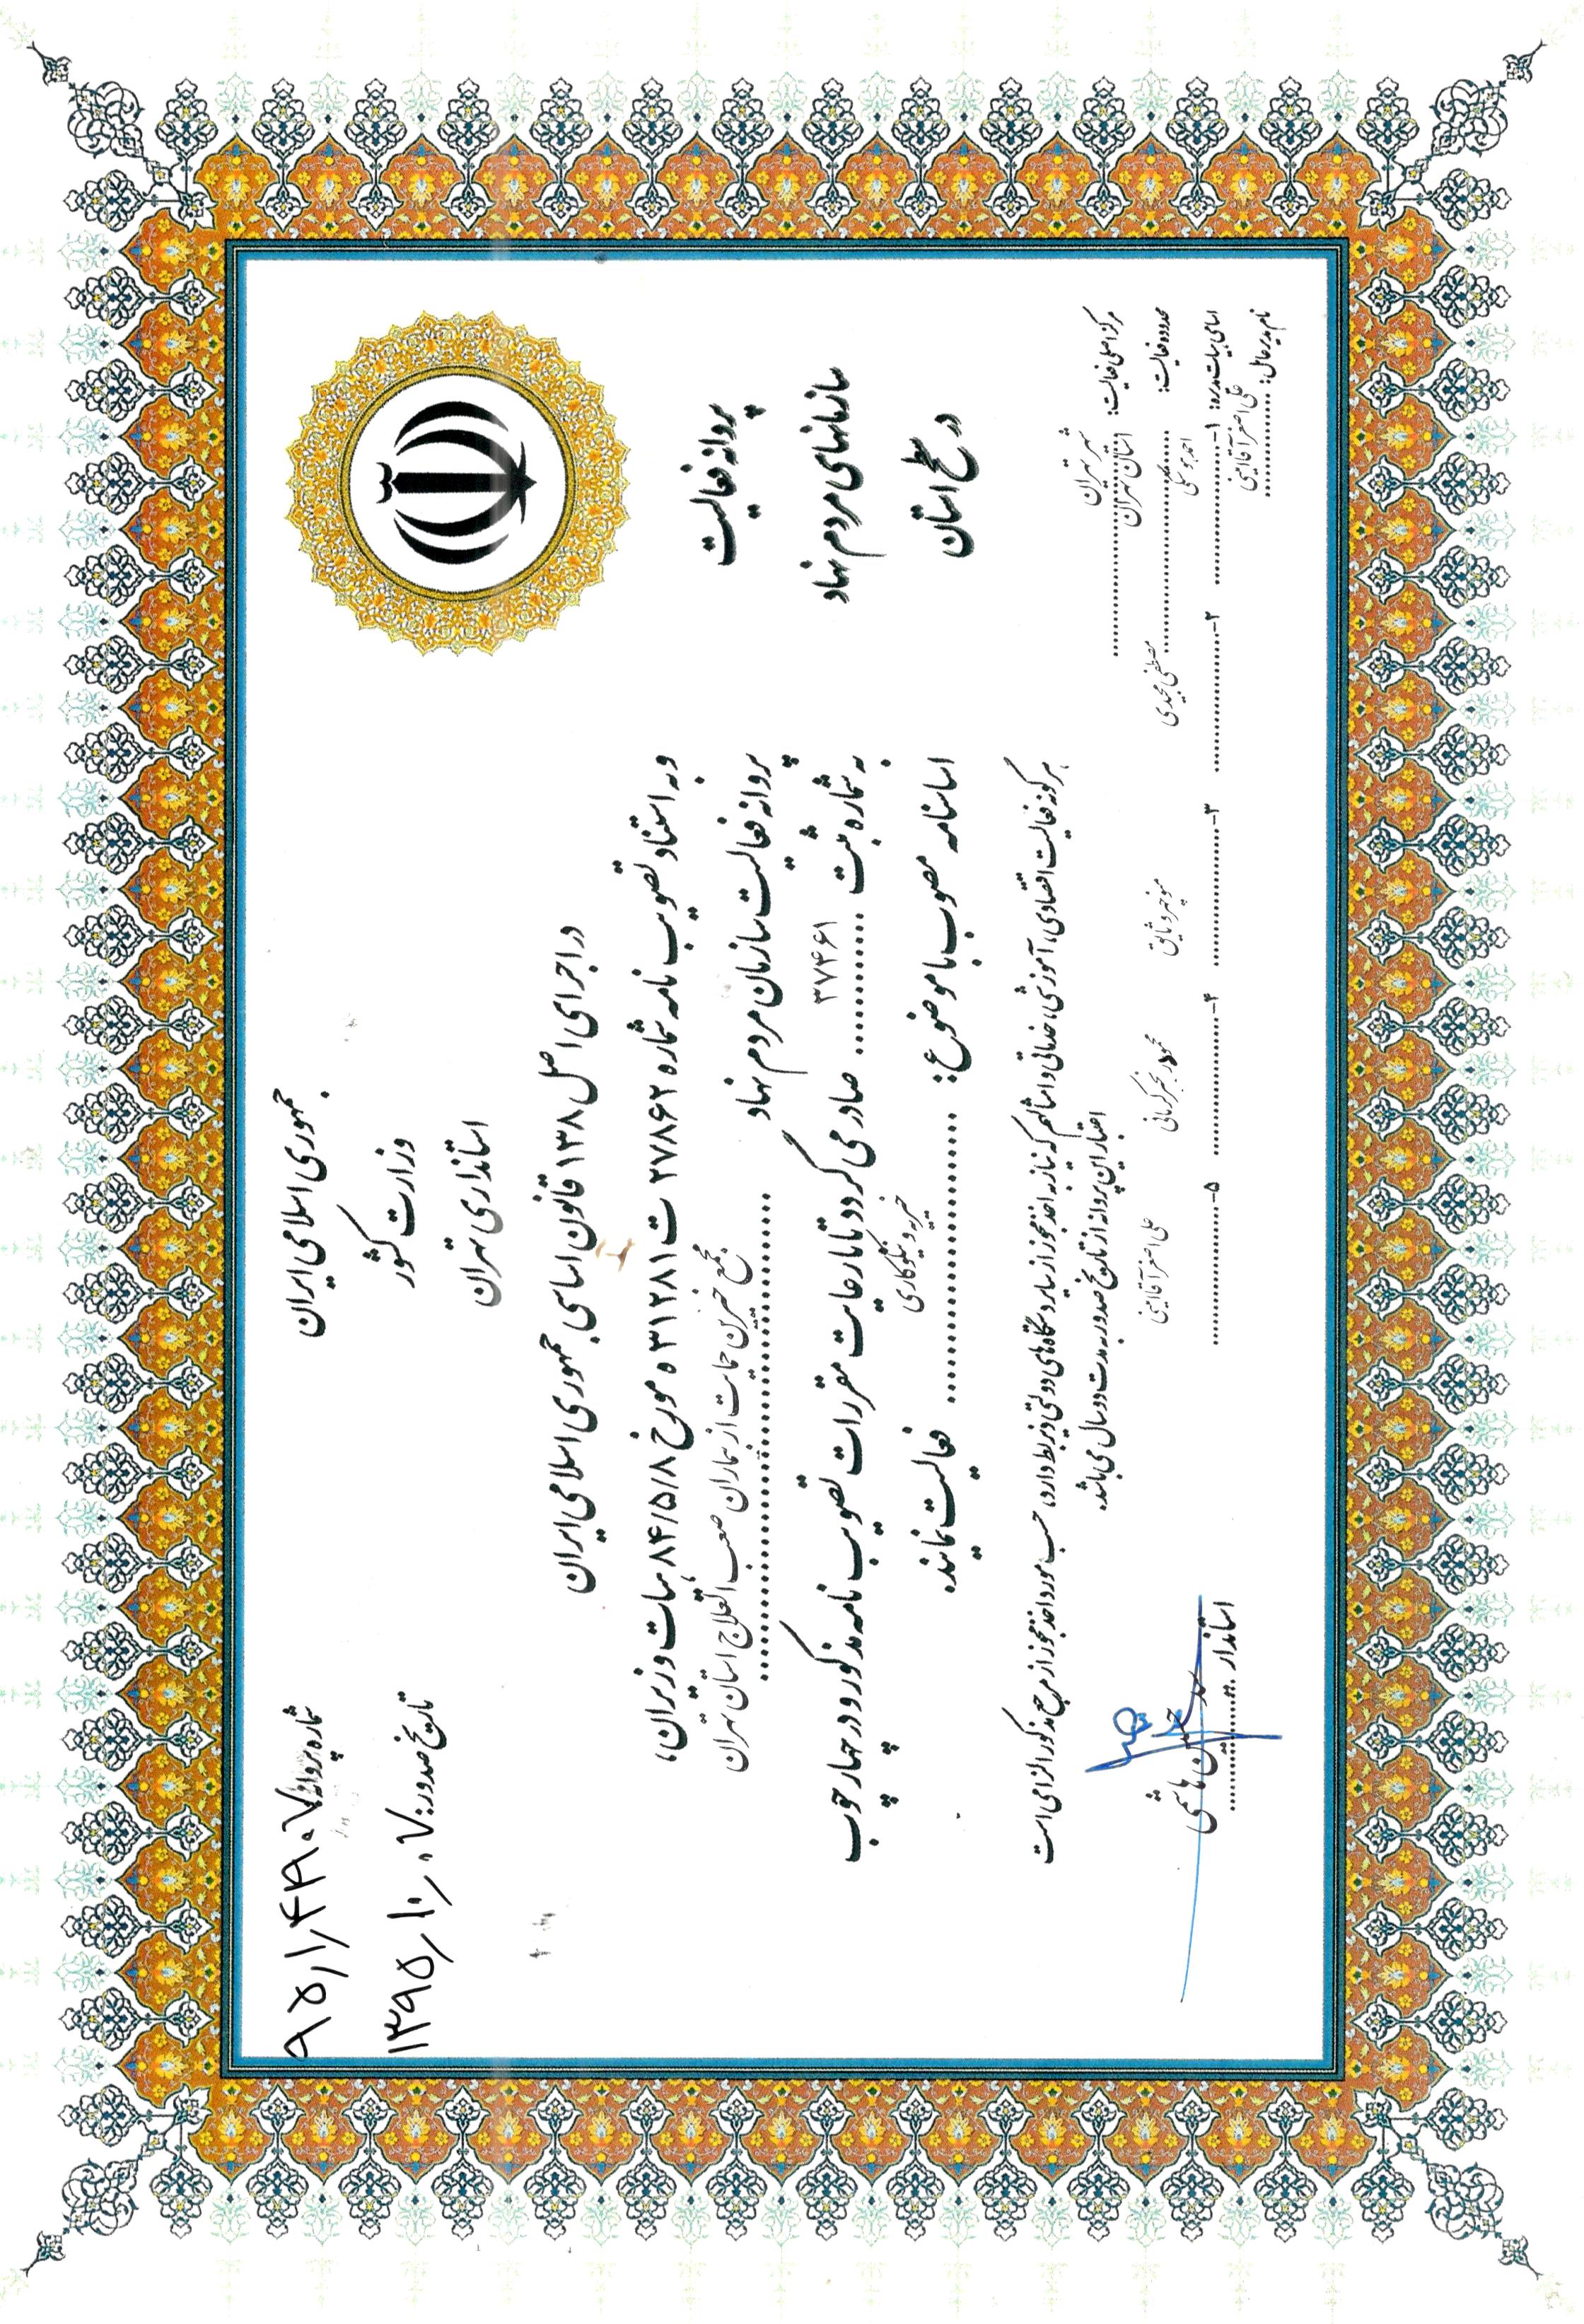 جمهوری اسلامی ایران
وزارت کشور
استانداری تهران
شماره پروانه: ۹۵/۱/۴۹۰۷
تاریخ صدور: ۱۳۹۵/۱۰/۰۷
پروانه فعالیت
سازمانهای مردم نهاد
در سطح استان
در اجرای اصل ۱۳۸ قانون اساسی جمهوری اسلامی ایران
و به استناد تصویب نامه شماره ۲۷۸۶۲ ت ۳۱۲۸۱ ه مورخ ۸۴/۵/۸ هیات وزیران،
پروانه فعالیت سازمان مردم نهاد مجمع خیرین حمایت از بیماران صعب العلاج استان تهران
به شماره ثبت ۳۷۴۶۱ صادر می گردد تا با رعایت مقررات تصویب نامه مذکور و در چهار چوب
اساسنامه مصوب با موضوع: خیریه و نیکوکاری فعالیت نماید.
هرگونه فعالیت اقتصادی، آموزشی، خدماتی و امثالهم که نیاز به اخذ مجوز از سایر دستگاه‌های دولتی ذیربط دارد، حسب مورد اخذ مجوز از مرجع مذکور الزامی است
اعتبار این پروانه از تاریخ صدور به مدت دو سال می باشد.
مرکز اصلی فعالیت: شهر تهران
محدوده فعالیت: استان تهران
اسامی هیات مدیره: ۱- احمد یوسفی ۲- مصطفی مجیدی ۳- منوچهر وثایق ۴- محمود رنجبر کرمانی ۵- علی اصغر آقاامینی
نام مدیرعامل: علی اصغر آقاامینی
استاندار
سید حسین هاشمی